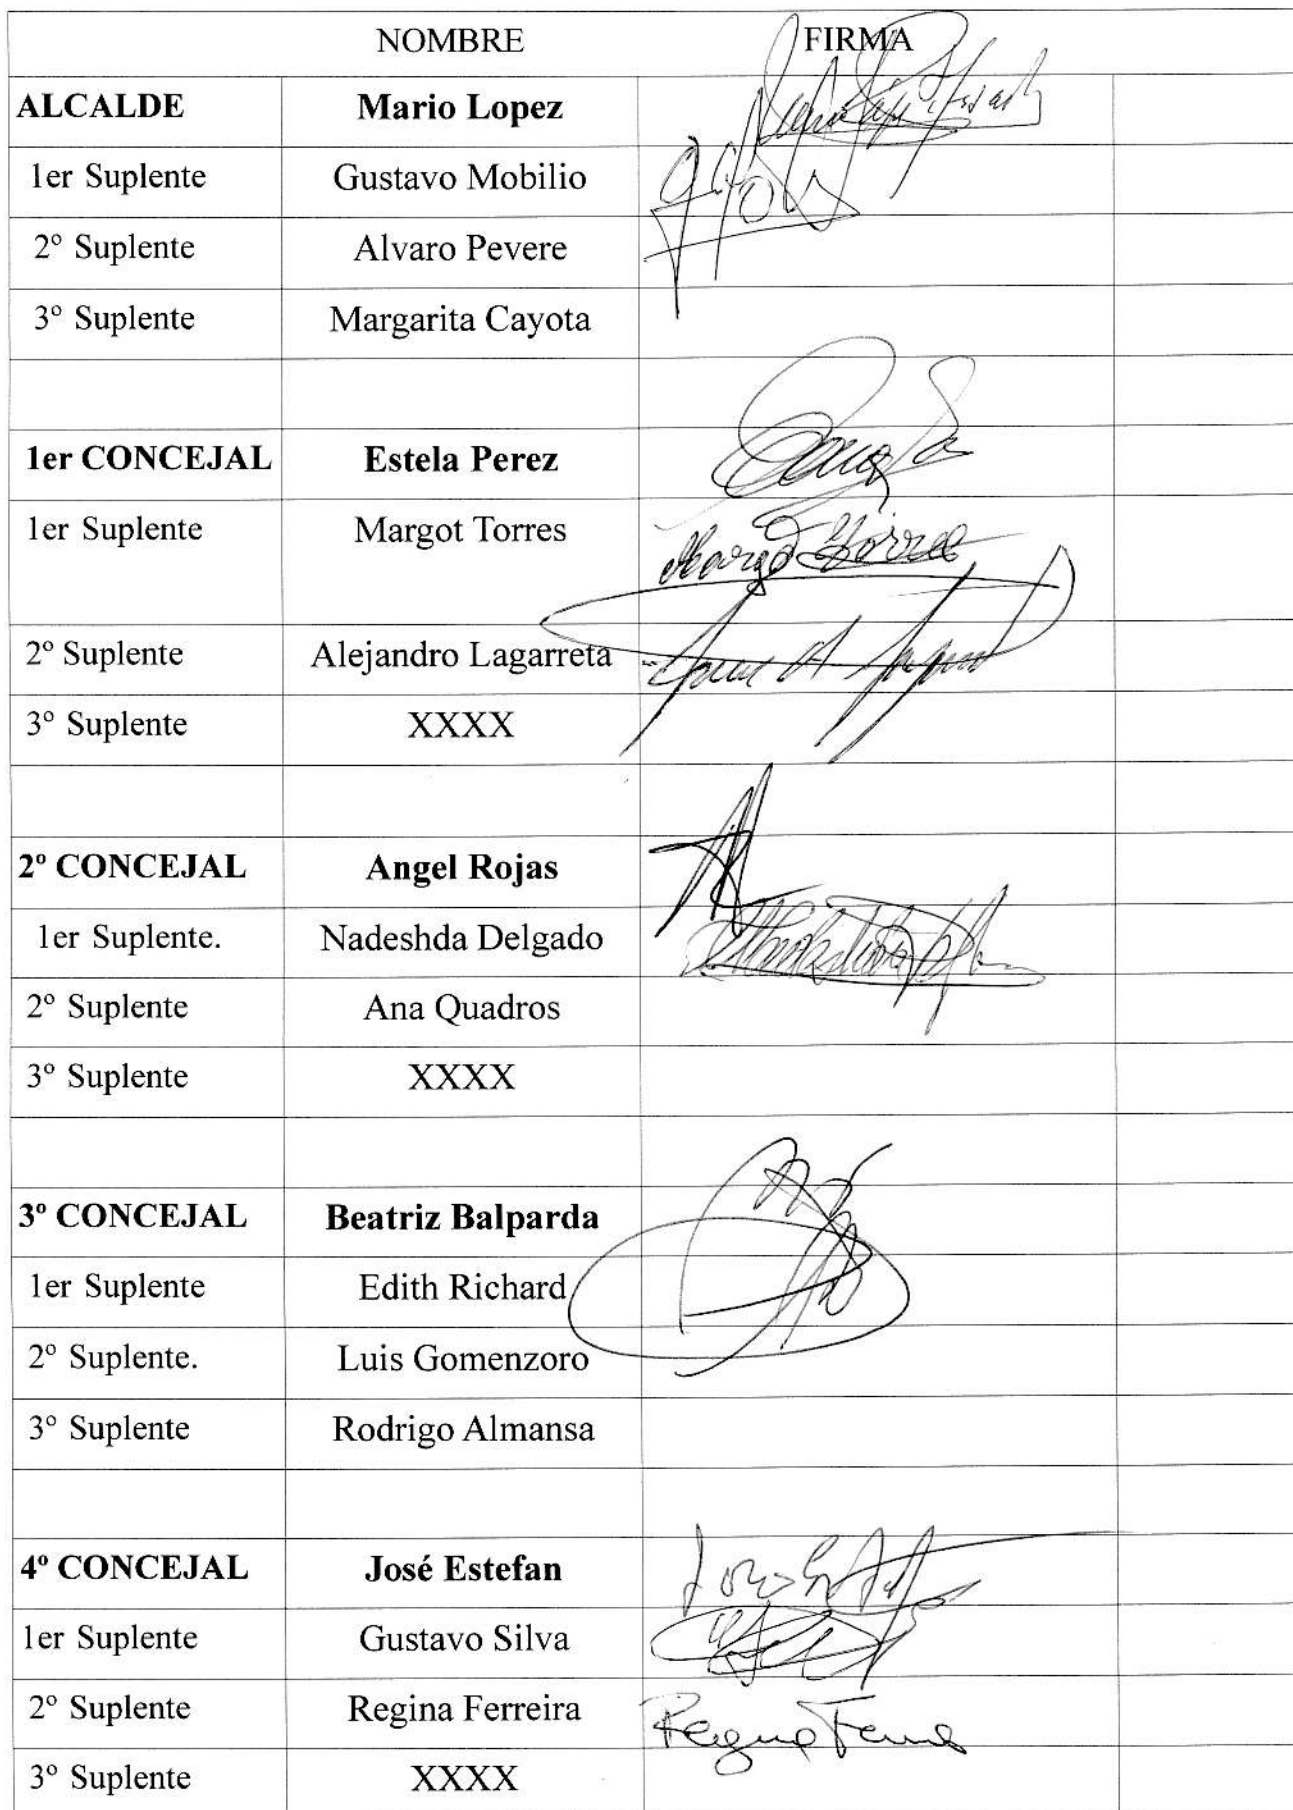 NOMBRE FIRMA
ALCALDE Mario Lopez
1er Suplente Gustavo Mobilio
2º Suplente Alvaro Pevere
3º Suplente Margarita Cayota
1er CONCEJAL Estela Perez
1er Suplente Margot Torres Margot Torres
2º Suplente Alejandro Lagarreta
3º Suplente XXXX
2º CONCEJAL Angel Rojas
1er Suplente. Nadeshda Delgado
2º Suplente Ana Quadros
3º Suplente XXXX
3º CONCEJAL Beatriz Balparda
1er Suplente Edith Richard
2º Suplente. Luis Gomenzoro
3º Suplente Rodrigo Almansa
4º CONCEJAL José Estefan
1er Suplente Gustavo Silva
2º Suplente Regina Ferreira
3º Suplente XXXX